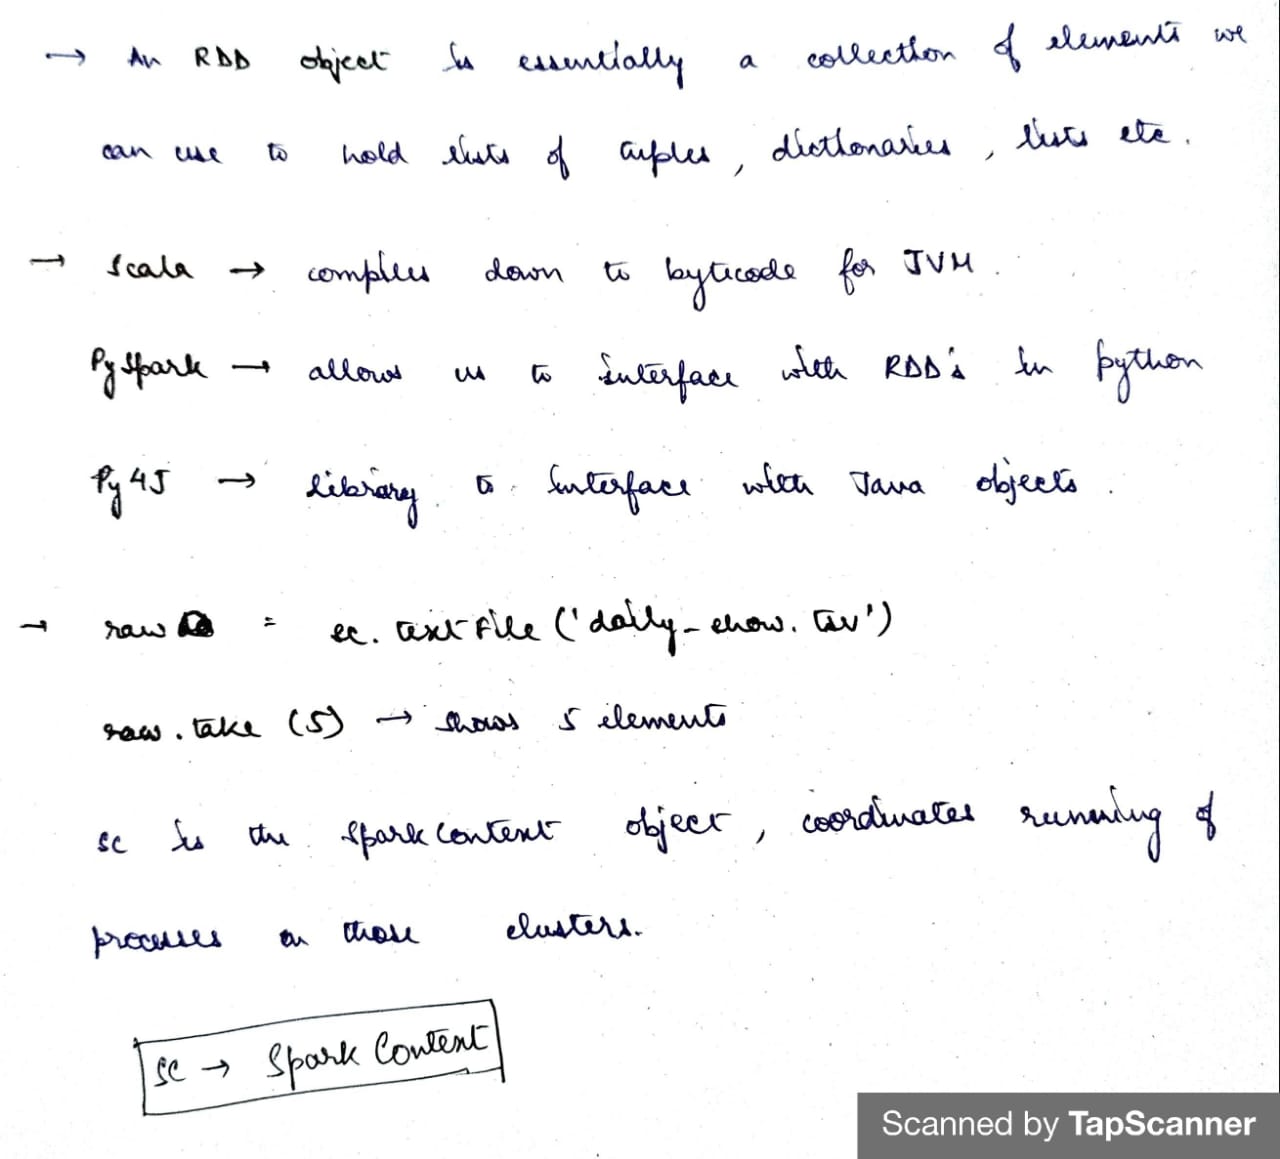 → An RDD object is essentially a collection of elements we
can use to hold lists of tuples, dictionaries, lists etc.
→ Scala → compiles down to bytecode for JVM.
PySpark → allows us to interface with RDD's in python
Py4J → library to interface with Java objects.
→ raw = sc.textFile('daily_show.tsv')
raw.take(5) → shows 5 elements
sc is the SparkContext object, coordinates running of
processes on those clusters.
sc → Spark Context
Scanned by TapScanner